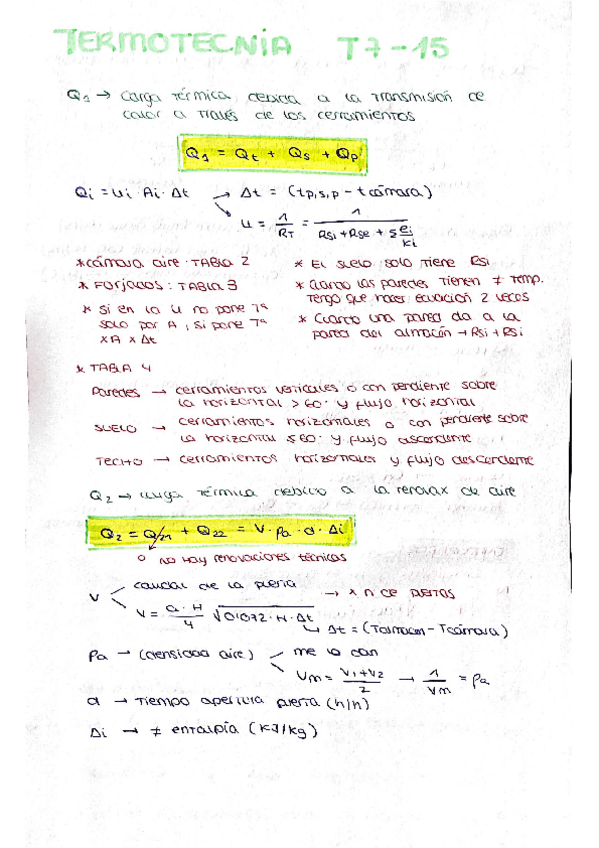 TERMOTECNIA T7-15
Q1 → Carga térmica debida a la transmisión de
calor a través de los cerramientos
Q1 = Qt + Qs + Qp
Qi = Ui · Ai · Δt → Δt = (tp,s,p - tcámara)
→ U = 1/RT = 1/(Rsi + Rse + Σ ei/ki)
* cámara aire: TABLA 2
* Forjados: TABLA 3
* Si en la U no pone Tª
solo por A, si pone Tª
x A x Δt
* El suelo solo tiene Rsi
* Cuando las paredes tienen ≠ temp.
tengo que hacer ecuación 2 veces
* Cuando una pared da a la
pared del almacén → Rsi + Rsi
* TABLA 4
Paredes → cerramientos verticales o con pendiente sobre
la horizontal > 60° y flujo horizontal
SUELO → cerramientos horizontales o con pendiente sobre
la horizontal ≤ 60° y flujo ascendente
TECHO → cerramientos horizontales y flujo descendente
Q2 → térmica debido a la renovax de aire
Q2 = Q21 + Q22 = V · ρa · d · Δi
0 no hay renovaciones técnicas
V caudal de la puerta
V = a · H/4 √0'072 · H · Δt → x nº de puertas
→ Δt = (Talmacen - Tcámara)
ρa → (densidad aire) me lo dan
Vm = (V1 + V2)/2 → 1/Vm = ρa
d → Tiempo apertura puerta (h/h)
Δi → ≠ entalpía (kJ/kg)